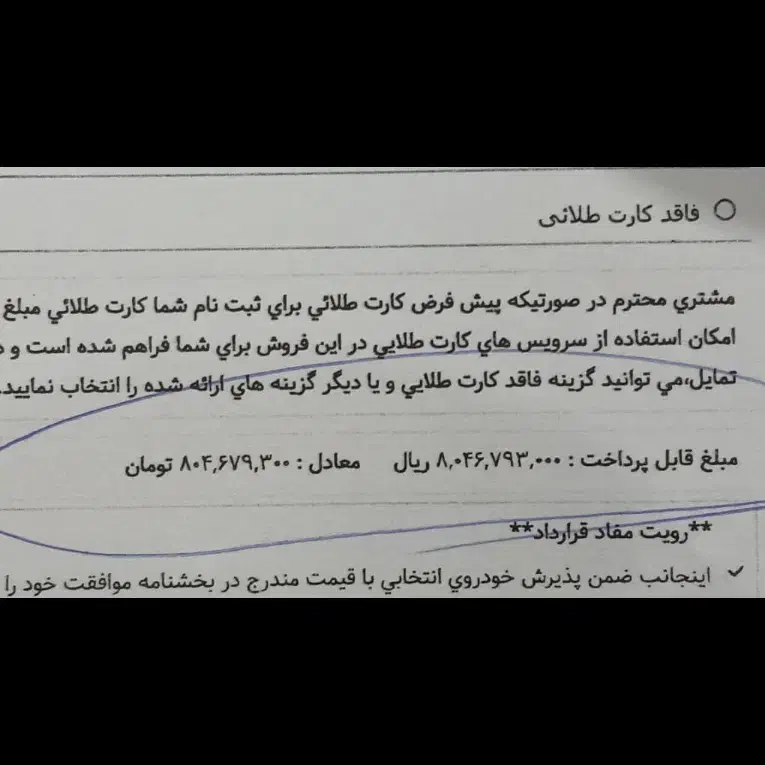 فاقد کارت طلائی
مشتري محترم در صورتيکه پيش فرض کارت طلائي براي ثبت نام شما کارت طلائي مبلغ
امکان استفاده از سرويس هاي کارت طلايي در اين فروش براي شما فراهم شده است و
تمايل،مي توانيد گزينه فاقد کارت طلايي و يا ديگر گزينه هاي ارائه شده را انتخاب نماييد.
مبلغ قابل پرداخت : ۸,۰۴۶,۷۹۳,۰۰۰ ريال معادل : ۸۰۴,۶۷۹,۳۰۰ تومان
**رويت مفاد قرارداد**
✓ اينجانب ضمن پذيرش خودروي انتخابي با قيمت مندرج در بخشنامه موافقت خود را